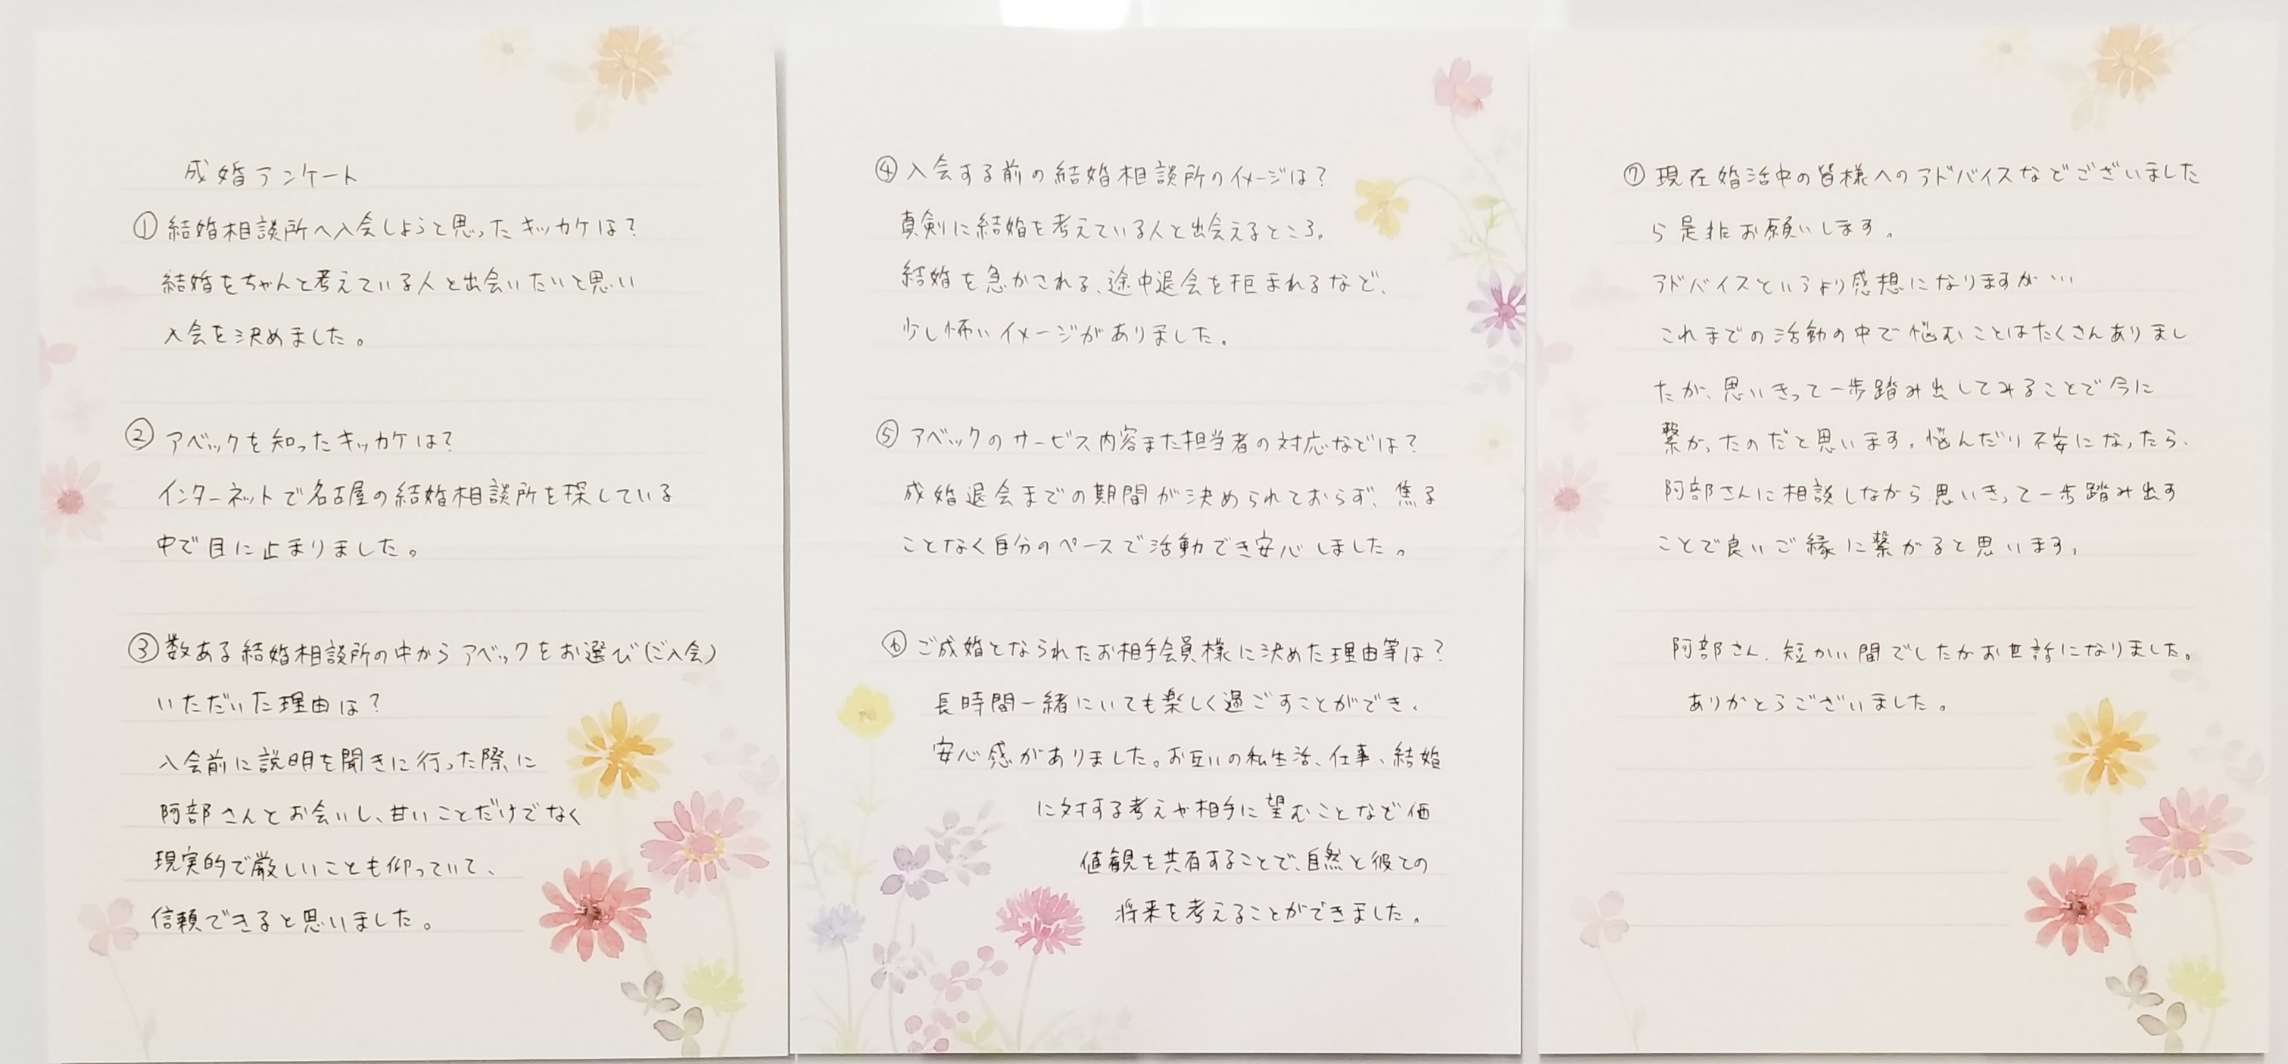 成婚アンケート
①結婚相談所へ入会しようと思ったキッカケは?
結婚をちゃんと考えている人と出会いたいと思い
入会を決めました。
②アベックを知ったキッカケは?
インターネットで名古屋の結婚相談所を探している
中で目に止まりました。
③数ある結婚相談所の中からアベックをお選び(ご入会)
いただいた理由は?
入会前に説明を聞きに行った際に
阿部さんとお会いし、甘いことだけでなく
現実的で厳しいことも仰っていて、
信頼できると思いました。
④入会する前の結婚相談所のイメージは?
真剣に結婚を考えている人と出会えるところ。
結婚を急かされる、途中退会を拒まれるなど、
少し怖いイメージがありました。
⑤アベックのサービス内容また担当者の対応などは?
成婚退会までの期間が決められておらず、焦る
ことなく自分のペースで活動でき安心しました。
⑥ご成婚となられたお相手会員様に決めた理由等は?
長時間一緒にいても楽しく過ごすことができ、
安心感がありました。お互いの私生活、仕事、結婚
に対する考えや相手に望むことなど価
値観を共有することで、自然と彼との
将来を考えることができました。
⑦現在婚活中の皆様へのアドバイスなどございました
ら是非お願いします。
アドバイスというより感想になりますが…
これまでの活動の中で悩むことはたくさんありまし
たが、思いきって一歩踏み出してみることで今に
繋がったのだと思います。悩んだり不安になったら、
阿部さんに相談しながら思いきって一歩踏み出す
ことで良いご縁に繋がると思います。
阿部さん、短かい間でしたがお世話になりました。
ありがとうございました。